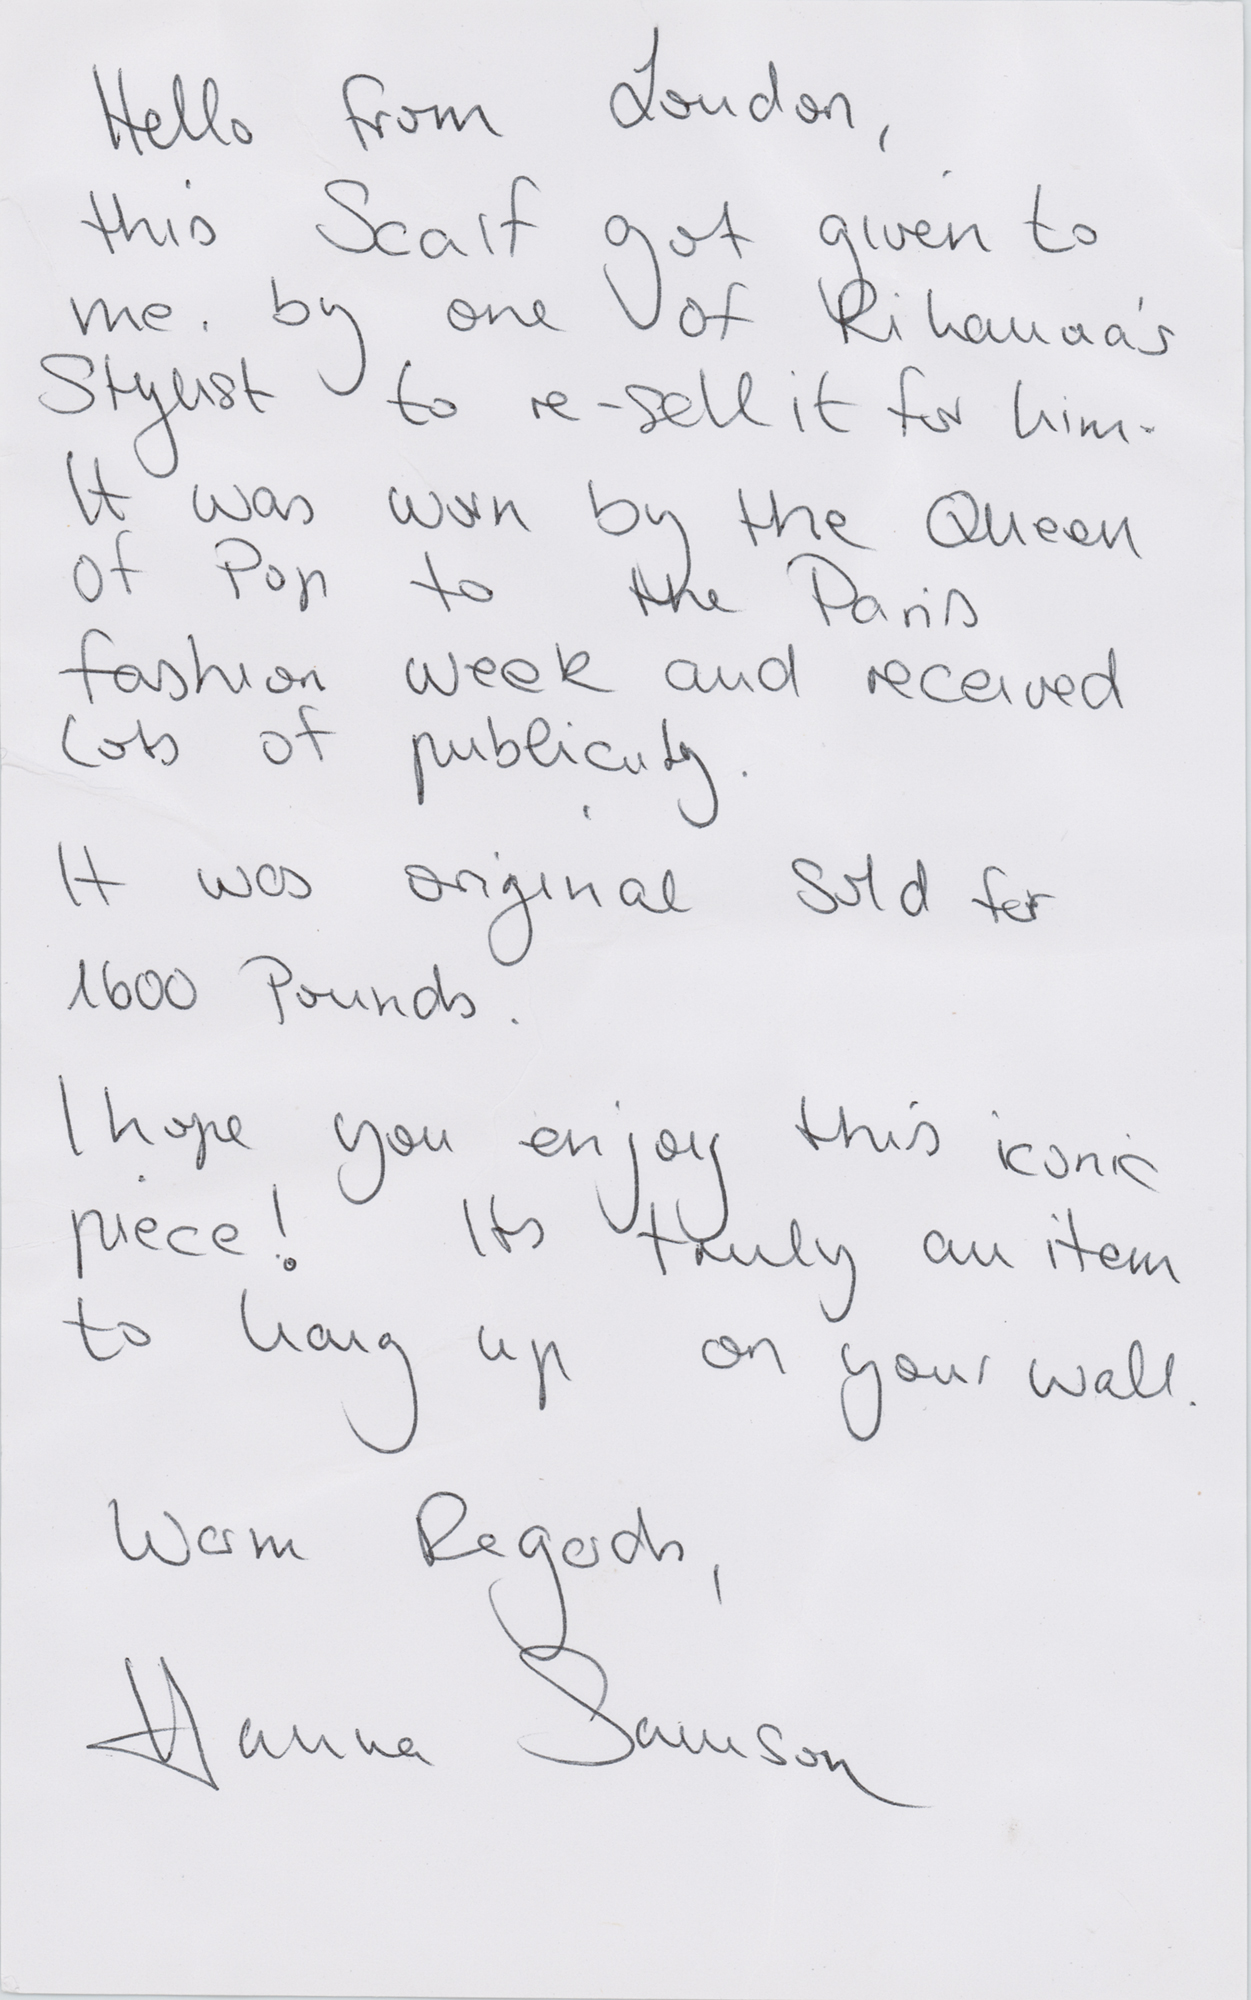 Hello from London,
this Scarf got given to
me. by one of Rihanna's
Stylist to re-sell it for him.
It was worn by the Queen
of Pop to the Paris
fashion week and received
Lots of publicity.
It was original sold for
1600 Pounds.
I hope you enjoy this iconic
piece! Its truly an item
to hang up on your wall.
Warm Regards,
Hanna Samson